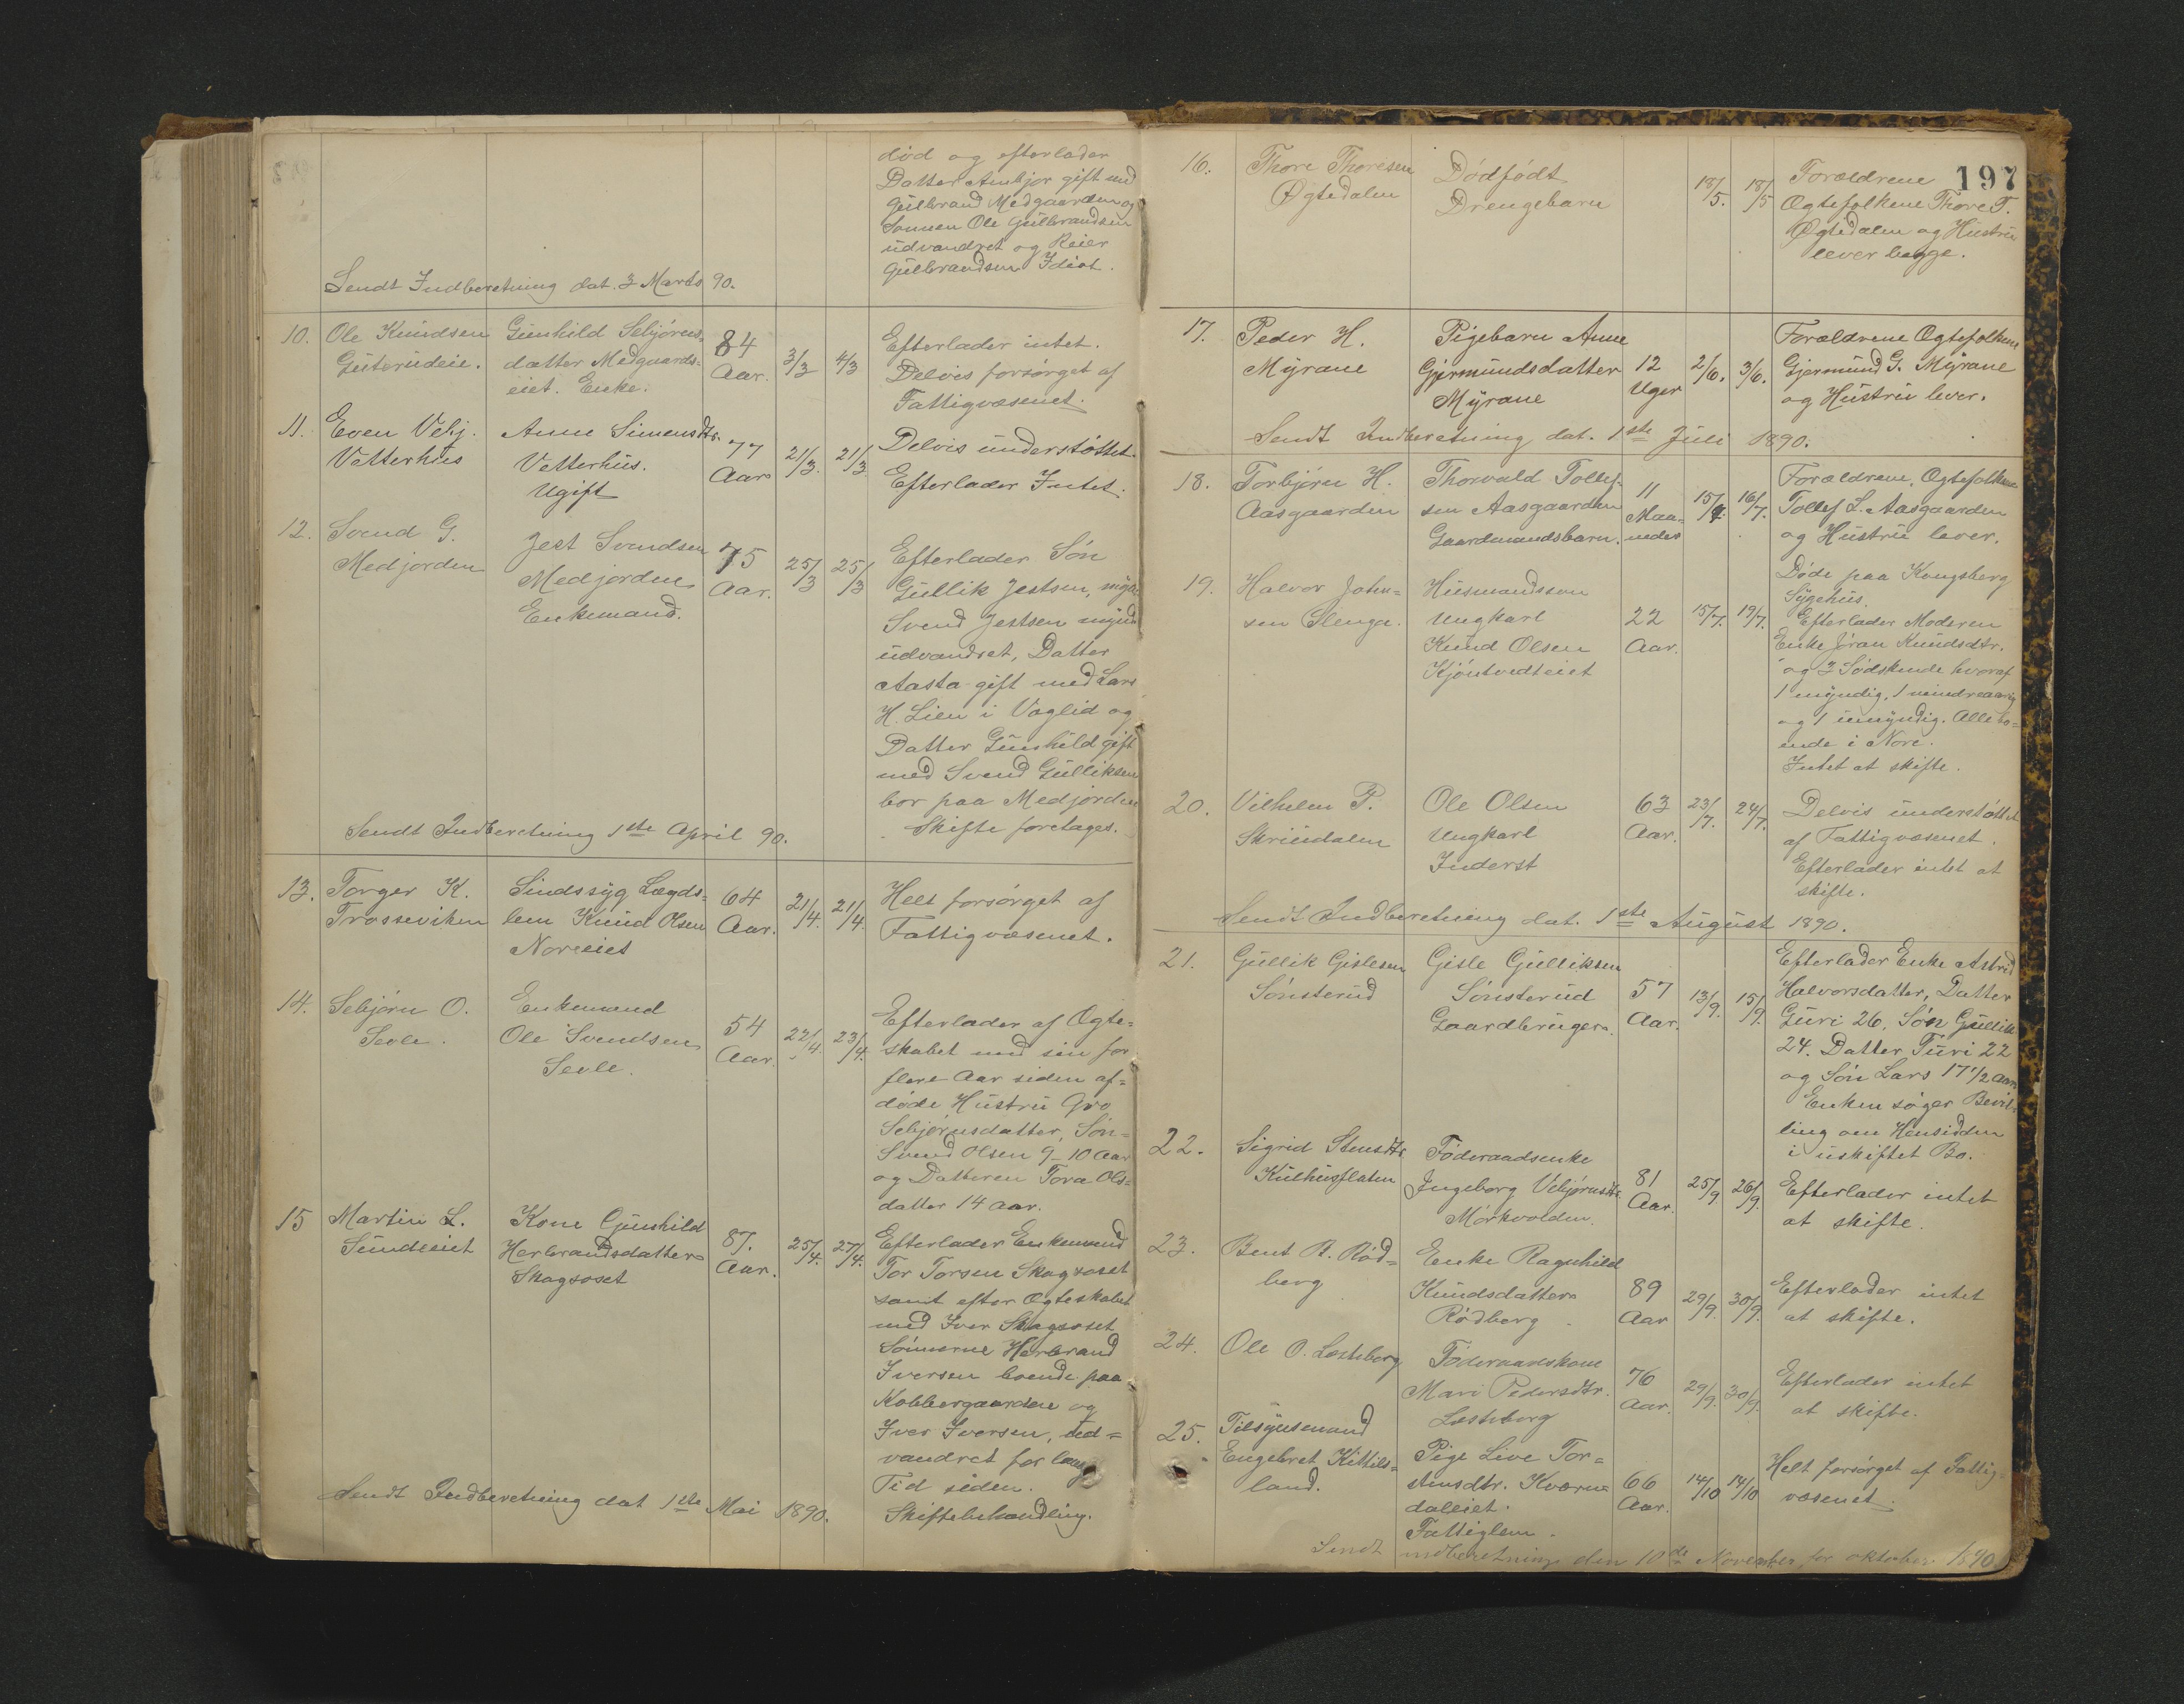 død og efterlader
Datter Ambjør gift med
Gulbrand Medgaarden og
Sønnen Ole Gulbrandsen
udvandret og Reier
Gulbrandsen Idiot.
Sendt Indberetning dat. 3 Marts 90.
10. Ole Knudsen Guterudeie.
Gunhild Sebjørns-
datter Medgaards-
eiet. Enke.
84 Aar. 3/3 4/3
Efterlader intet.
Delvis forsørget af
Fattigvæsenet.
11. Even Vebj.
Vetterhus
Anne Simensdtr.
Vetterhus.
Ugift
77 Aar 21/3. 21/3
Delvis understøttet.
Efterlader Intet.
12. Svend G.
Medjorden
Jest Svendsen
Medjorden
Enkemand.
75 Aar. 25/3 25/3
Efterlader Søn
Gullik Jestsen, mynd.
Svend Jestsen mynd.
udvandret, Datter
Aasta gift med Lars
H. Lien i Væglid og
Datter Gunhild gift
med Svend Gulliksen
bor paa Medjorden
Skifte foretages.
Sendt Indberetning 1ste April 90.
13. Torger K.
Trosseviken
Sindssyg Lægds-
lem Knud Olsen
Noreeiet
64 Aar. 21/4. 21/4.
Helt forsørget af
Fattigvæsenet.
14. Sebjørn O.
Sevle.
Enkemand
Ole Svendsen
Sevle.
54 Aar. 22/4. 23/4.
Efterlader af Ægte-
skabet med sin for
flere Aar siden af-
døde Hustru Gro
Sebjørnsdatter, Søn-
Svend Olsen 9-10 Aar
og Datteren Tora Ols-
datter 14 Aar.
15 Martin L.
Sundeiet
Kone Gunhild
Herbrandsdatter
Skagsoset
87. Aar. 25/4. 27/4.
Efterlader Enkemand
Tor Torsen Skagsoset
samt efter Ægteskabet
med Iver Skagsoset
Sønnerne Herbrand
Iversen boende paa
Kobbergaardene og
Iver Iversen, ud-
vandret for lang
Tid siden.
Skiftebehandling.
Sendt Indberetning dat 1ste Mai 1890.
197
16. Thore Thoresen
Øgtedalen
Dødfødt
Drengebarn
18/5. 18/5
Forældrene
Ægtefolkene Thore T.
Øgtedalen og Hustru
lever begge.
17. Peder H.
Myrane
Pigebarn Anne
Gjermundsdatter
Myrane
12 Uger 2/6. 3/6.
Forældrene Ægtefolkene
Gjermund G. Myrane
og Hustru lever.
Sendt Indberetning dat. 1ste Juli 1890.
18. Torbjørn H.
Aasgaarden
Thorvald Tollef-
sen Aasgaarden
Gaardmandsbarn.
11 Maaneder 15/7. 16/7.
Forældrene, Ægtefolkene
Tollef L. Aasgaarden
og Hustru lever.
19. Halvor John-
sen Slenga.
Husmandssøn
Ungkarl
Knud Olsen
Kjøntvedteiet
22 Aar. 15/7. 19/7.
Døde paa Kongsberg
Sygehus.
Efterlader Moderen
Enke Jøran Knudsdtr.
og 3 Sødskende hvoraf
1 myndig, 1 mindreaarig
og 1 umyndig. Alle bo-
ende i Nore.
Intet at skifte.
20. Vilhelm P.
Skriudalen
Ole Olsen
Ungkarl
Inderst
63 Aar. 23/7. 24/7.
Delvis understøttet
af Fattigvæsenet.
Efterlader intet at
skifte.
Sendt Indberetning dat. 1ste August 1890.
21. Gullik Gislesen
Sønsterud
Gisle Gulliksen
Sønsterud
Gaardbruger.
57 Aar. 13/9. 15/9.
Efterlader Enke Astrid
Halvorsdatter, Datter
Guri 26, Søn Gullik
24. Datter Turi 22
og Søn Lars 17 1/2 Aar
Enken søger Bevil-
ling om Hensidden
i uskiftet Bo.
22. Sigrid Stensdtr
Kulhusflaten
Føderaadsenke
Ingeborg Vebjørnsdtr.
Mørkvolden.
81 Aar. 25/9 26/9.
Efterlader intet
at skifte.
23. Bent R. Rød-
berg
Enke Ragnhild
Knudsdatter
Rødberg.
89 Aar 29/9. 30/9.
Efterlader intet
at skifte.
24. Ole O. Losteborg
Føderaadskone
Mari Pedersdtr.
Losteborg
76 Aar. 29/9. 30/9.
Efterlader intet
at skifte.
25. Tilsynsmand
Engebret Kittils-
land.
Pige Live Tor-
stensdtr. Kværn-
daleiet.
Fattiglem.
66 Aar. 14/10 14/10
Helt forsørget af Fattig-
væsenet.
Sendt indberetning den 10de November for oktober 1890.